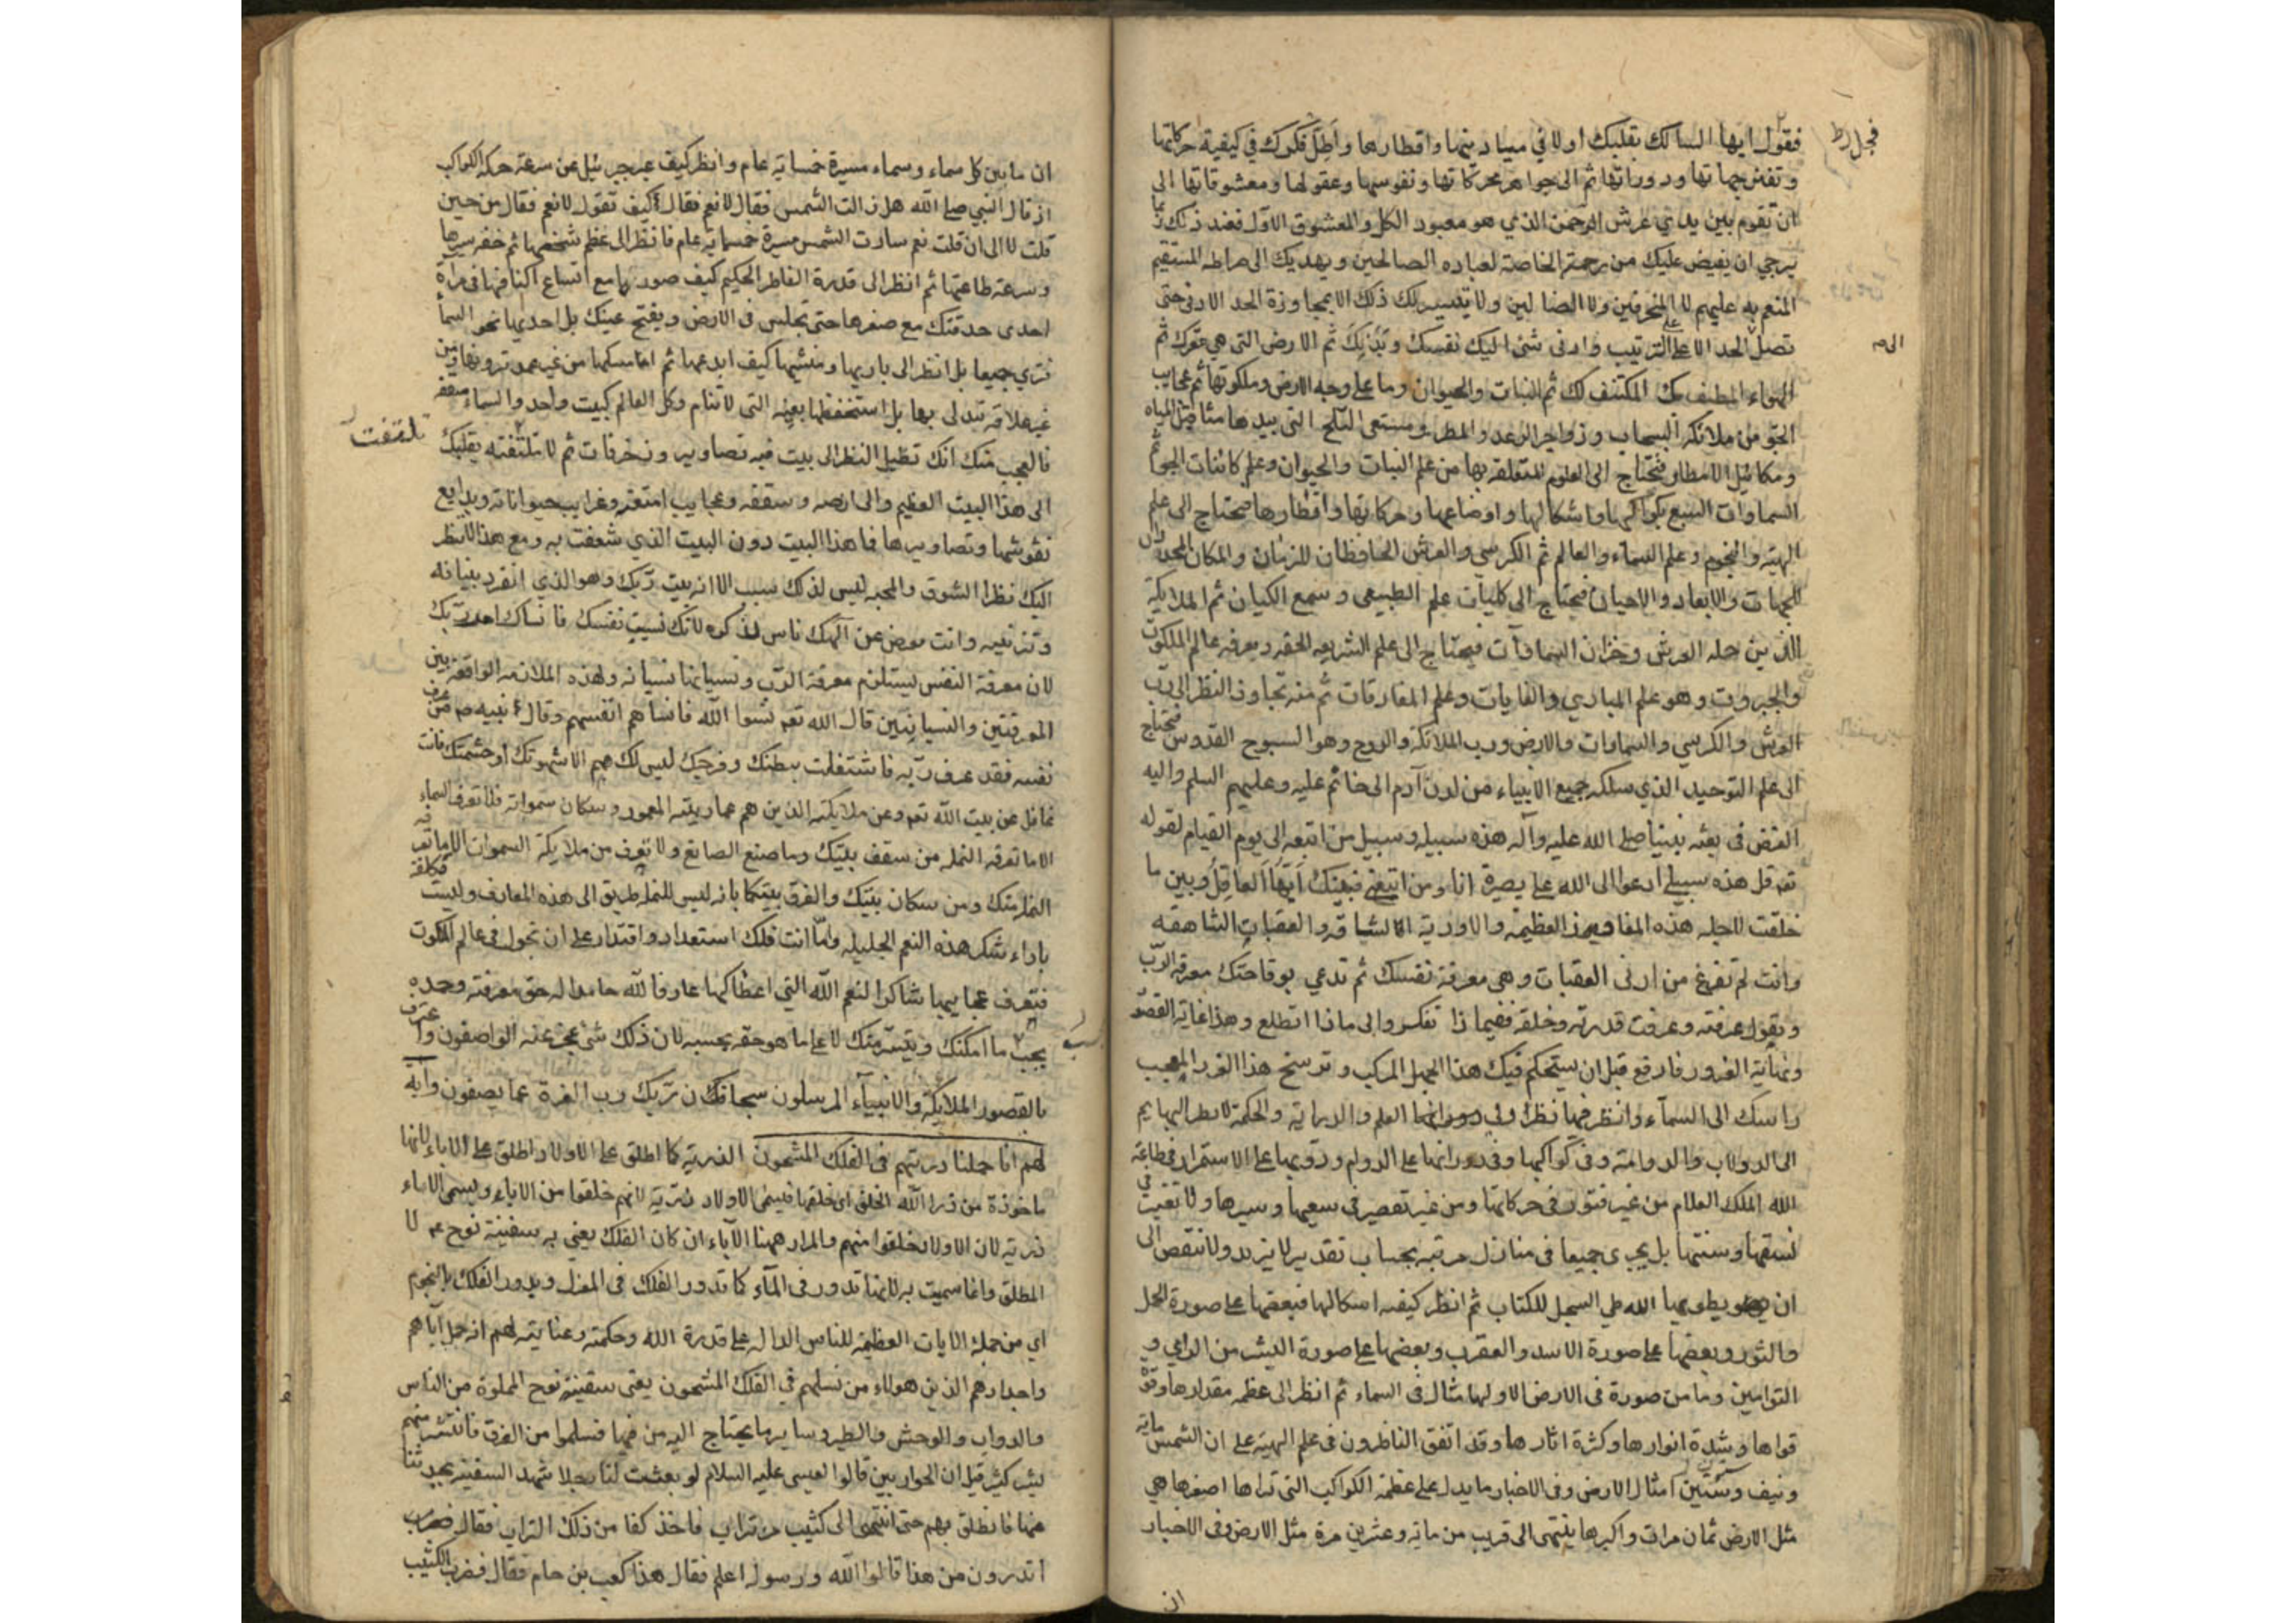 فجل رط
فقول ايها السالك بقلبك اولا في ميادينها واقطارها واطل فكرك في كيفية حركاتها
وتفنن جهاتها ودوراتها ثم الى جواهر محركاتها ونفوسها وعقولها ومعشوقاتها الى
ان تقوم بين يدي عرش الرحمن الذي هو معبود الكل والمعشوق الاول فعند ذلك
يرجي ان يفيض عليك من رحمته الخاصة لعباده الصالحين ويهديك الى صراطه المستقيم
المنعم به عليهم لا المنحرفين ولا الضالين ولا يتيسر لك ذلك الا بمجاوزة الحد الادنى حتى
تصل الحد الاعلى على الترتيب وادنى شئ اليك نفسك وبدنك ثم الارض التي هي مقرك ثم
الى ص
الهواء المطيف بك المكتنف لك ثم النبات والحيوان وما على وجه الارض وملكوتها ثم عجايب
الجو من ملائكة السحاب وزواجر الرعد والمطر ومستعى الثلج التي بيدها مثاقيل المياه
ومكائيل الامطار فتحتاج الى العلوم المتعلقة بها من علم النبات والحيوان وعلم كائنات الجو ثم
السماوات السبع بكواكبها واشكالها واوضاعها وحركاتها واقطارها فتحتاج الى علم
الهيئة والنجوم وعلم السماء والعالم ثم الكرسي والعرش الحافظان للزمان والمكان المحددان
للجهات والابعاد والاحيان فتحتاج الى كليات علم الطبيعي وسمع الكيان ثم الملايكة
الذين حملة العرش وخزان السماوات فيحتاج الى علم الشريعه الحقه ومعرفه عالم الملكوت
والجبروت وهو علم المبادي والغايات وعلم المفارقات ثم منه تجاوز النظر الى رب
العرش والكرسي والسماوات والارض ورب الملائكة والروح وهو السبوح القدوس فتحتاج
الى علم التوحيد الذي سلكه جميع الانبياء من لدن آدم الى خاتم عليه وعليهم السلم واليه
الغرض في بعثه نبينا صلى الله عليه وآله هذه سبيله وسبيل من اتبعه الى يوم القيام لقوله
تعه قل هذه سبيلي ادعوا الى الله على بصيرة انا ومن اتبعني فبينك ايها العاقل وبين ما
خلقت لاجله هذه المفاوز العظيمة والاودية الشاقه والعقبات الشاهقه
وانت لم تفرغ من ادنى العقبات وهي معرفة نفسك ثم تدعي بوقاحتك معرفه الرب
وتقول عرفته وعرفت قدرته وخلقه ففيما ذا تفكر والى ماذا اتطلع وهذا غاية القصور
ونهاية الغرور فارفع قبل ان يستحكم فيك هذا الجهل المركب وترسخ هذا الغرور المعجب
راسك الى السماء وانظر فيها نظرا اولي العلم والدراية والحكمة لا نظر البهايم
الى الدولاب والدوامة وفي كواكبها وفي دورانها على الدوام ودؤبها على الاستمرار في طاعة
الله الملك العلام من غير فتور في حركاتها ومن غير تقصير في سعيها وسيرها ولا تغير في
نسقها وسننها بل يجري جميعا في منازل مرتبه بحساب تقدير لا يزيد ولا ينقص الى
ان يطويها الله طي السجل للكتاب ثم انظر كيفيه اشكالها فبعضها على صورة الحمل
والثور وبعضها على صورة الاسد والعقرب وبعضها على صورة البشر من الراعي و
التوامين وما من صورة في الارض الا ولها مثال في السماء ثم انظر الى عظم مقدارها وقوة
قواها وشدة انوارها وكثرة اثارها وقد اتفق الناظرون في علم الهيئة على ان الشمس مايه
ونيف وستين امثال الارض وفي الاخبار ما يدل على عظمة الكواكب التي تراها اصغرها هي
مثل الارض ثمان مرات واكبرها ينتهى الى قريب من مائه وعشرين مرة مثل الارض وفي الاخبار
ان
ان ما بين كل سماء وسماء مسيرة خمسمائة عام وانظر كيف عبر جبرئيل عن سرعة حركه الكواكب
اذ قال النبي صلى الله هل زالت الشمس فقال لا نعم فقال كيف تقول لا نعم فقال من حين
قلت لا الى ان قلت نعم سارت الشمس مسيرة خمسمائة عام فانظر الى عظم شخصها ثم خفه سيرها
وسرعة طاعتها ثم انظر الى قدرة الفاطر الحكيم كيف صورتها مع اتساع اكنافها في مرآة
احدى حدقتك مع صغرها حتى تجلس في الارض ويفتح عينك بل احديها نحو السما
فترى جميعا بل انظر الى باريها ومنشيها كيف ابدعها ثم امسكها من غير عمد ترونها ومن
غير علاقه تتدلى بها بل استحفظها بعينه التي لا تنام وكل العالم كبيت واحد والسماء سقفه
فالعجب منك انك تطيل النظر الى بيت فيه تصاوير وزخرفات ثم لا تلتفته بقلبك
تلتفت
الى هذا البيت العظيم والى ارضه وسقفه وعجايب امتعته وغرايب حيواناته وبدايع
نقوشها وتصاويرها فما هذا البيت دون البيت الذي شعفت به ومع هذا لا تنظر
اليك نظر الشوق والمحبه ليس لذلك سبب الا انه بيت ربك وهو الذي انفرد ببنيانه
وتزيينه وانت معرض عن الهك ناس لذكره لانك نسيت نفسك فانساك احد ربك
لان معرفة النفس يستلزم معرفة الرب ونسيانها نسيانه ولهذه الملازمه الواقعة بين
المعرفتين والنسيانين قال الله تعه نسوا الله فانساهم انفسهم وقال نبيه ص من عرف
نفسه فقد عرف ربه فاشتغلت ببطنك وفرجك ليس لك هم الا شهوتك او حشمتك فانت
غافل عن بيت الله تعه وعن ملايكته الذين هم عمار بيته المعمور وسكان سمواته فلا تعرف السماء
الا ما تعرفه النمله من سقف بيتك وما صنع الصانع ولا تعرف من ملايكة السموات الا ما تعرفه
النمله منك ومن سكان بيتك والفرق بينكما بانه ليس للنمل طريق الى هذه المعارف وليست مكلفة
باداء شكر هذه النعم الجليله واما انت فلك استعداد واقتدار على ان تجول في عالم الملكوت
فتعرف عجايبها شاكرا لنعم الله التي اعطاكها عارفا لله حامدا له حق معرفته وحمده
بحسب ما امكنك ويتيسر منك لا على ما هو حقه بحسبه لان ذلك شئ عجز عنه الواصفون واعترف
بالقصور الملايكة والانبياء المرسلون سبحانك ربك رب العزة عما يصفون وآية
لهم انا حملنا ذريتهم في الفلك المشحون الذرية كما اطلق على الاولاد اطلق على الاباء لانها
ماخوذة من ذرا الله الخلق اى خلقها فيسمى الاولاد ذرية لانهم خلقوا من الاباء ويسمى الاباء
ذرية لان الاولاد خلقوا منهم والمراد ههنا الآباء ان كان الفلك يعني به سفينة نوح عم لا
المطلق وانما سميت به لانها تدور في الماء كما تدور الفلك في المغزل ويدور الفلك بالنجوم
اي من جملة الايات العظيمة للناس الدالة على قدرة الله وحكمته وعنايته لهم انه حمل آباهم
واجدادهم الذين هولاء من نسلهم في الفلك المشحون يعنى سفينة نوح المملوة من الناس
والدواب والوحش والطير وساير ما يحتاج اليه من فيها فسلموا من الغرق فانتشر منهم
بشر كثير قيل ان الحواريين قالوا لعيسى عليه السلام لو بعثت لنا رجلا شهد السفينة يحدثنا
عنها فانطلق بهم حتى انتهى الى كثيب من تراب فاخذ كفا من ذلك التراب فقال
اتدرون من هذا قالوا الله ورسوله اعلم فقال هذا كعب بن حام فقال فضرب الكثيب